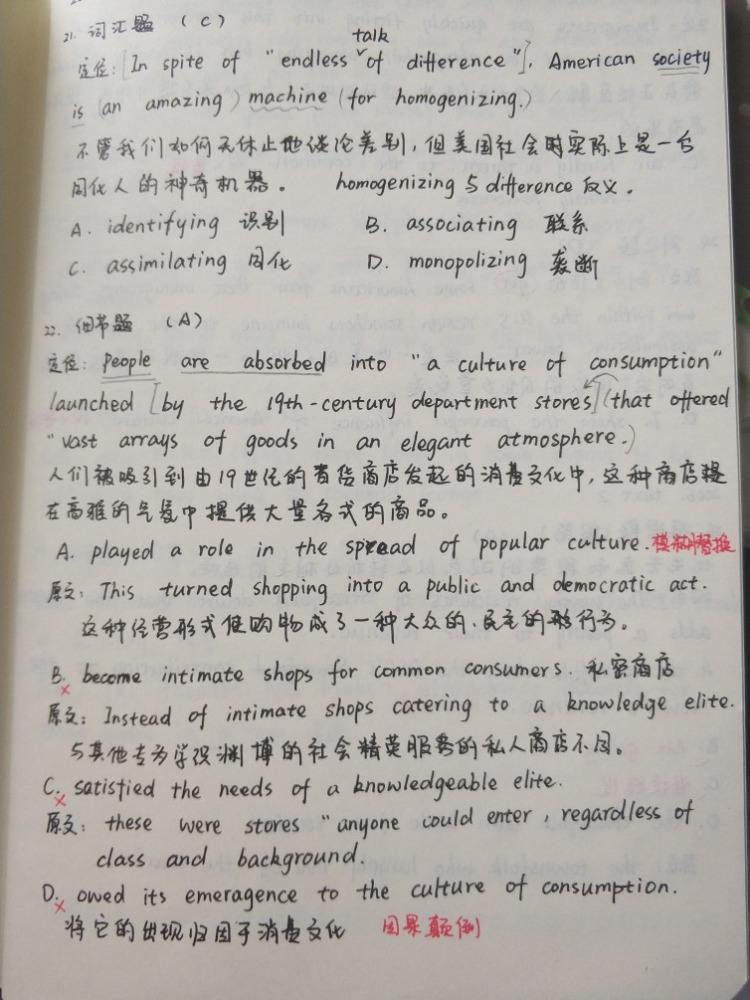 21. 词汇题 (C)
定位: [In spite of "endless talk of difference"], American society
is (an amazing) machine (for homogenizing.)
不管我们如何无休止地谈论差别, 但美国社会时实际上是一台
同化人的神奇机器。 homogenizing 与 difference 反义.
A. identifying 识别 B. associating 联系
C. assimilating 同化 D. monopolizing 垄断
22. 细节题 (A)
定位: People are absorbed into "a culture of consumption"
launched [by the 19th-century department stores] (that offered
"vast arrays of goods in an elegant atmosphere.)
人们被吸引到由19世纪的百货商店发起的消费文化中, 这种商店提
在高雅的气氛中提供大量各式的商品。
A. played a role in the spread of popular culture. 模糊替换
原文: This turned shopping into a public and democratic act.
这种经营形式使购物成了一种大众的、民主的形行为。
B. × become intimate shops for common consumers. 私密商店
原文: Instead of intimate shops catering to a knowledge elite.
与其他专为学识渊博的社会精英服务的私人商店不同。
C. × satisfied the needs of a knowledgeable elite.
原文: these were stores "anyone could enter, regardless of
class and background.
D. × owed its emeragence to the culture of consumption.
将它的出现归因于消费文化 因果颠倒